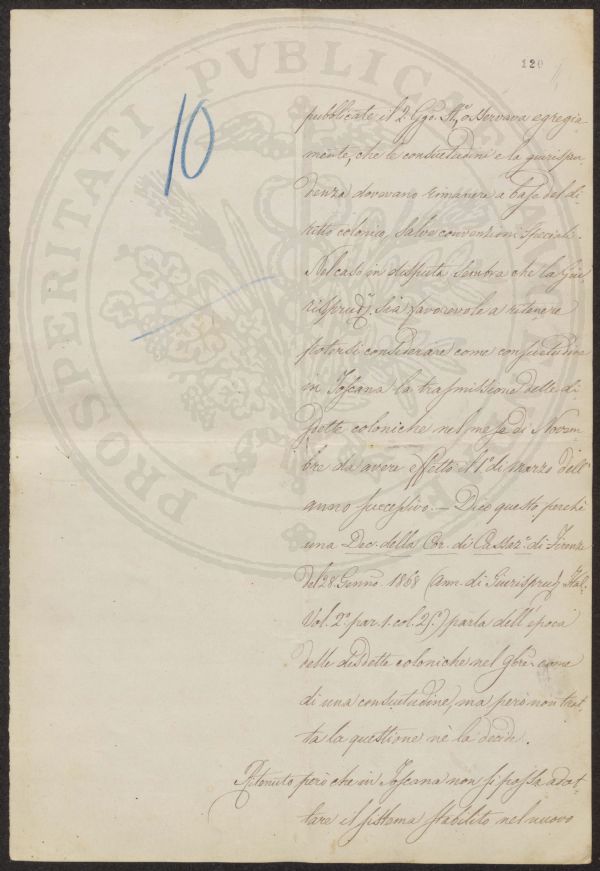 120
10
pubblicate il 2 Ggo. osservava egregia-
mente, che le consuetudini e la giurispru
denza dovevano rimanere a base del di-
ritto colonico, salve convenzioni speciali.
Nel caso in disputa sembra che la Giu-
risprud.ª sia favorevole a ritenere
potersi considerare come consuetudine
in Toscana la trasmissione delle di
sdette coloniche nel mese di Novem-
bre da avere effetto il 1º di marzo dell'
anno successivo. — Dico questo perchè
una Dec. della Cor. di Cassaz.e di Firenze
del 28 Genno 1868 (Ann. di Giurisprud. Ital.
Vol. 2º par. 1. col. 25.) parla dell'epoca
delle disdette coloniche nel 9bre come
di una consuetudine, ma però non trat-
ta la questione nè la decide.
Ritenuto però che in Toscana non si possa adot-
tare il sistema stabilito nel nuovo
PROSPERITATI PUBLICAE